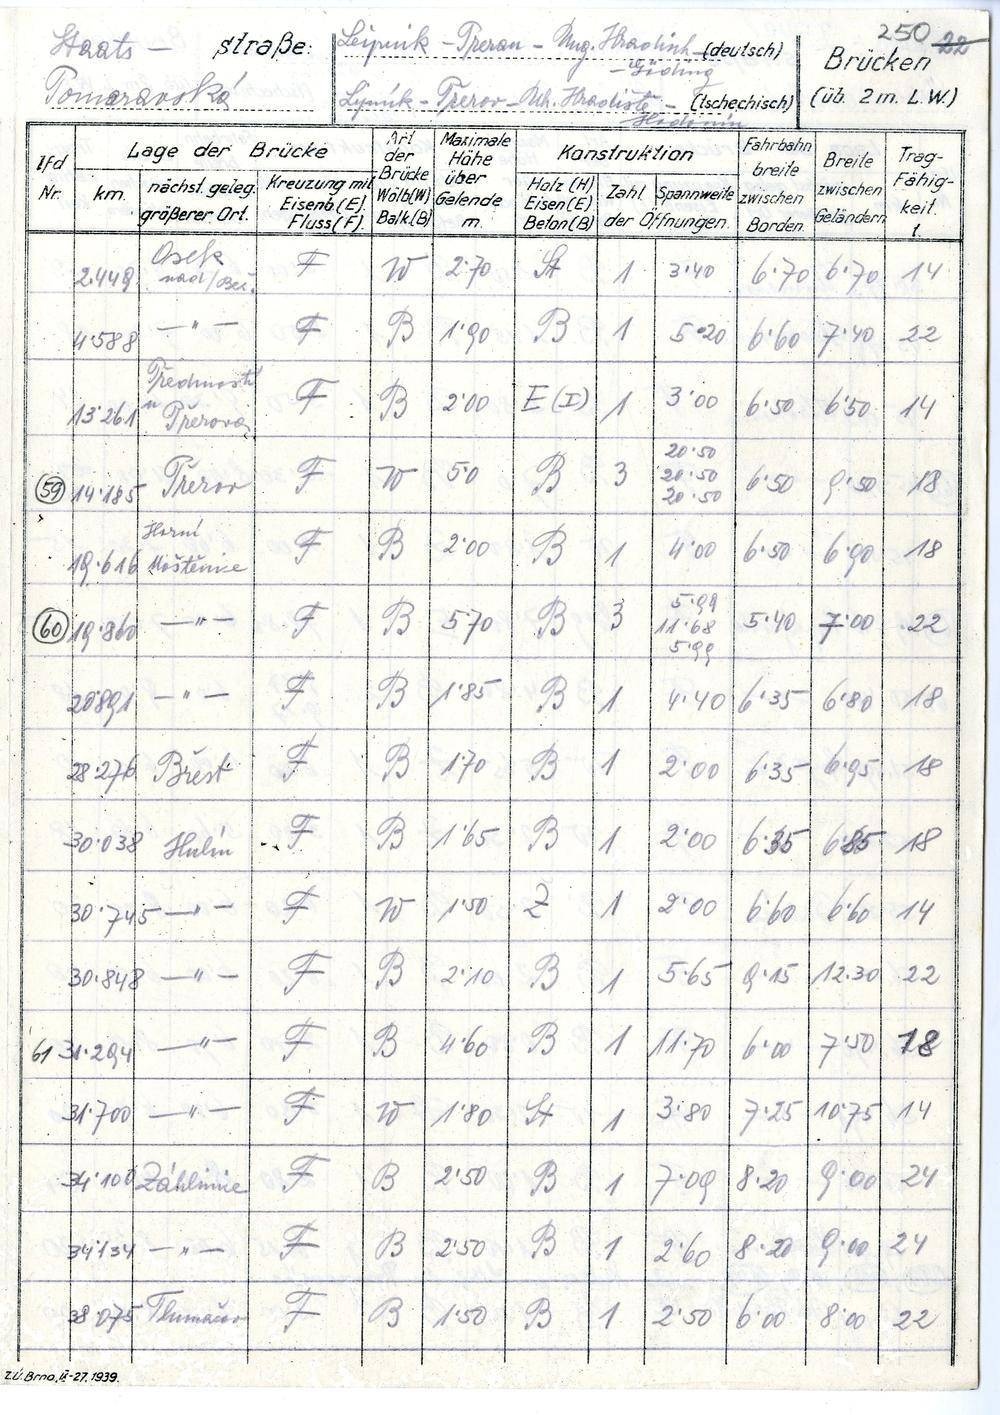 250 22
Staats – straße: Leipnik – Prerau – Ung. Hradisch (deutsch) Brücken
– Göding
Pomoravská Lipník – Přerov – Uh. Hradiště – (tschechisch) (üb. 2 m. L.W.)
Hodonín
lfd Nr. Lage der Brücke Art der Brücke Wölb(W) Balk(B) Maximale Höhe über Gelende m. Konstruktion Fahrbahn breite zwischen Borden Breite zwischen Geländern Trag-Fähig-keit t.
km. nächst. geleg. größerer Ort. Kreuzung mit Eisenb(E) Fluss(F) Holz(H) Eisen(E) Beton(B) Zahl Spannweite der Öffnungen
2.449 Osek nad/Beč. F W 2.70 St 1 3.40 6.70 6.70 14
4.588 —„— F B 1.90 B 1 5.20 6.60 7.40 22
13.261 Předmostí u Přerova F B 2.00 E(I) 1 3.00 6.50 6.50 14
59 14.185 Přerov F W 5.0 B 3 20.50 20.50 20.50 6.50 9.50 18
19.616 Horní Moštěnice F B 2.00 B 1 4.00 6.50 6.90 18
60 19.860 —„— F B 5.70 B 3 5.99 11.68 5.99 5.40 7.00 22
20.891 —„— F B 1.85 B 1 4.40 6.35 6.80 18
28.276 Břest F B 1.70 B 1 2.00 6.35 6.95 18
30.038 Hulín F B 1.65 B 1 2.00 6.35 6.85 18
30.745 —„— F W 1.50 Z 1 2.00 6.60 6.60 14
30.848 —„— F B 2.10 B 1 5.65 9.15 12.30 22
61 31.294 —„— F B 4.60 B 1 11.70 6.00 7.50 18
31.700 —„— F W 1.80 St 1 3.80 7.25 10.75 14
34.100 Záhlinice F B 2.50 B 1 7.09 8.20 9.00 24
34.134 —„— F B 2.50 B 1 2.60 8.20 9.00 24
38.075 Tlumačov F B 1.50 B 1 2.50 6.00 8.00 22
Z.Ú. Brno, IX-27. 1939.